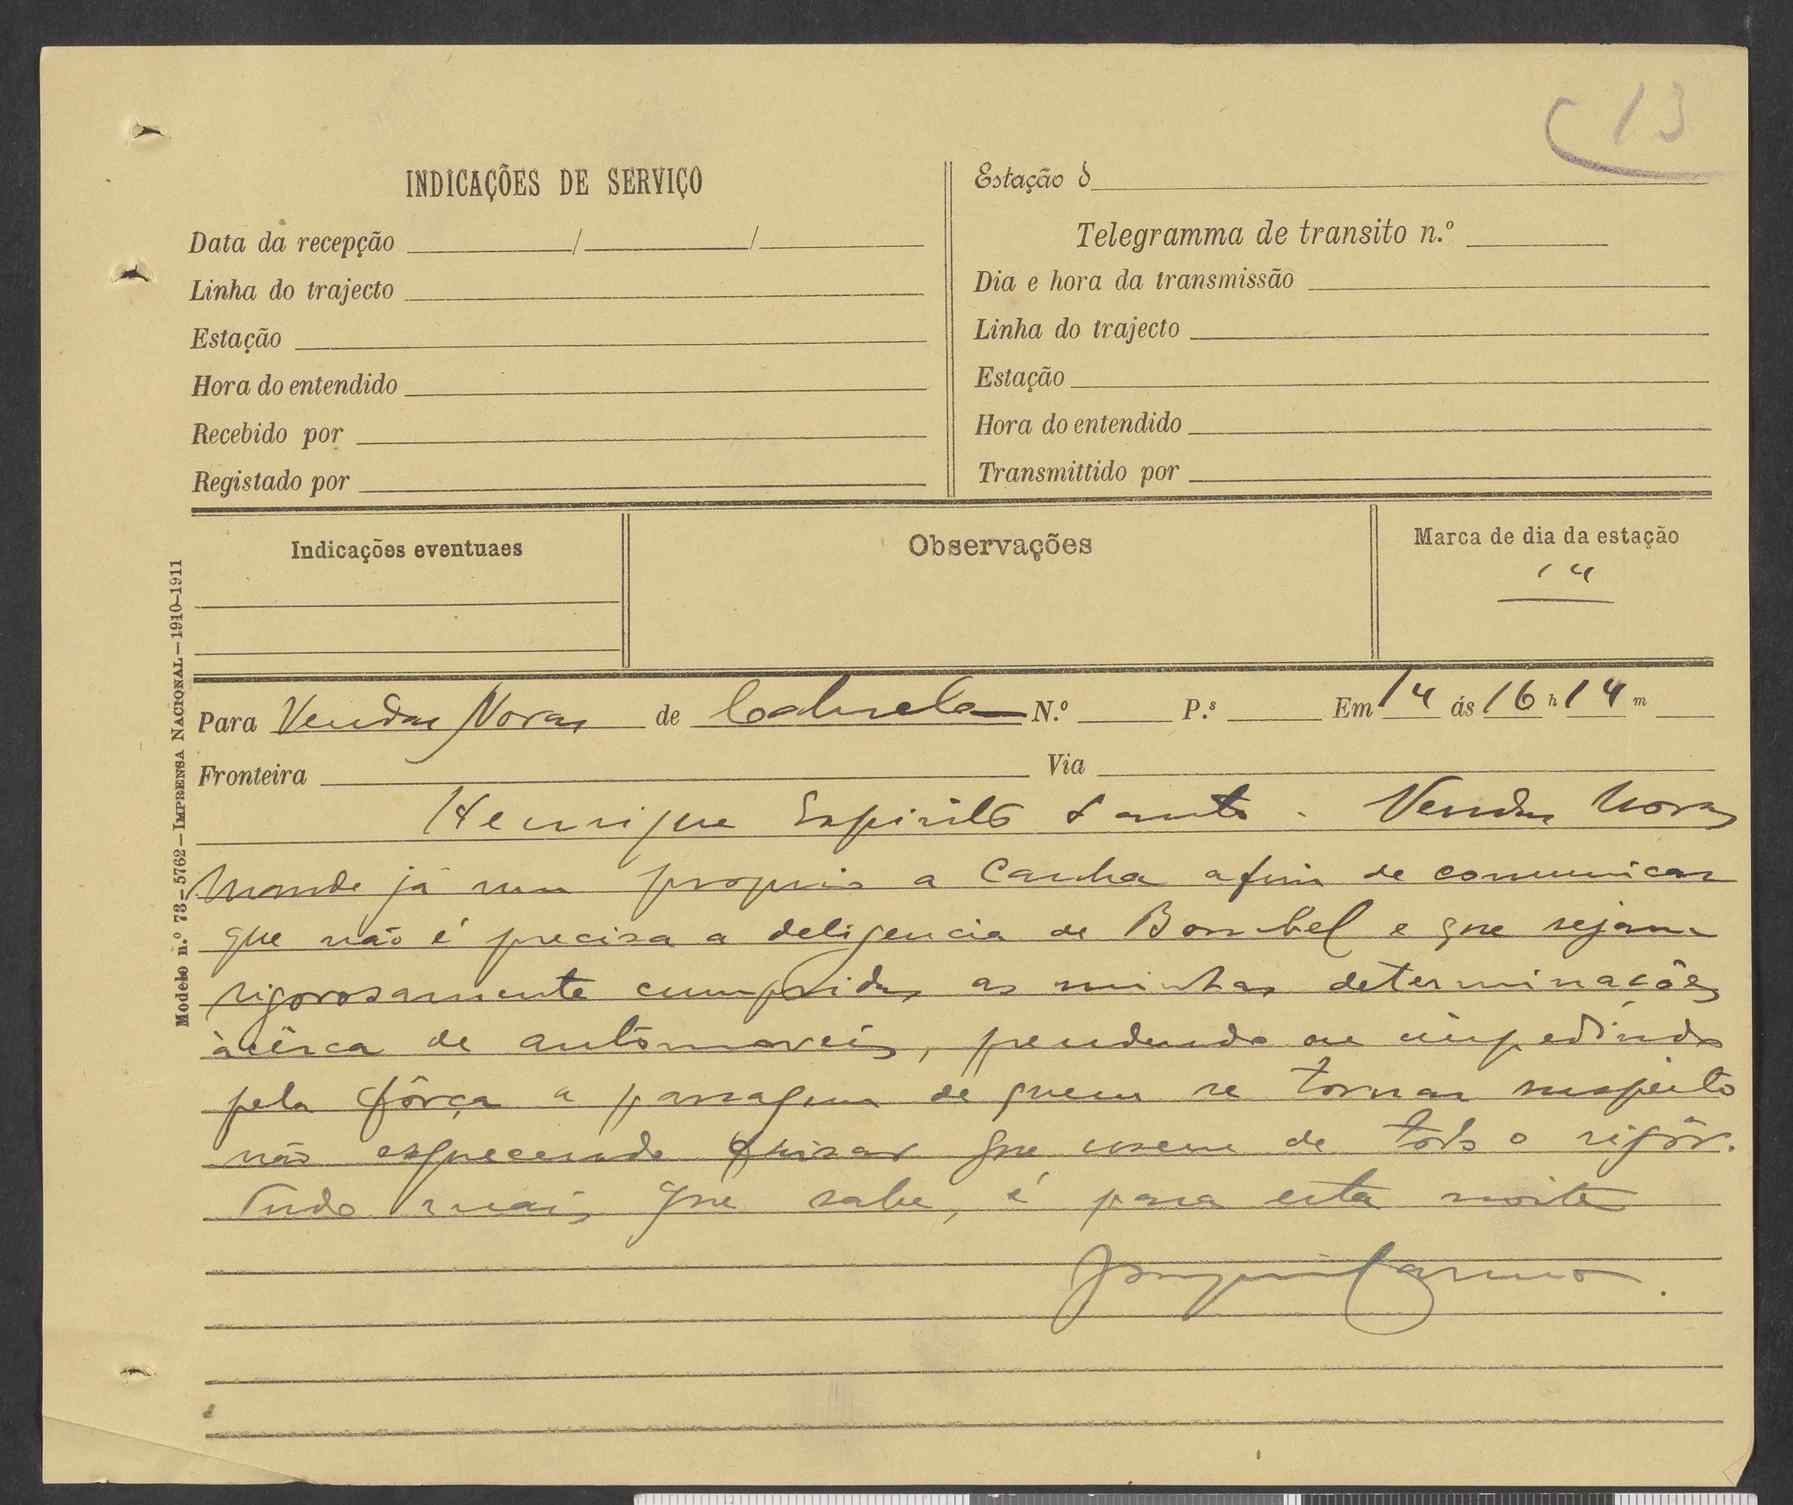 C 13
INDICAÇÕES DE SERVIÇO
Data da recepção / /
Linha do trajecto
Estação
Hora do entendido
Recebido por
Registado por
Estação d
Telegramma de transito n.º
Dia e hora da transmissão
Linha do trajecto
Estação
Hora do entendido
Transmittido por
Indicações eventuaes
Observações
Marca de dia da estação
14
Modelo n.º 73—5762—IMPRENSA NACIONAL—1910-1911
Para Vendas Novas de Cabrela N.º P.s Em 14 ás 16 h 14 m
Fronteira Via
Henrique Espirito Santo - Vendas Novas
Mande já um proprio a Canha afim de comunicar
que não é precisa a deligencia de Bombel e que sejam
rigorosamente cumpridas as minhas determinações
àcêrca de automoveis, prendendo ou impedindo
pela fôrça a passagem de quem se tornar suspeito
não esquecendo avisar que usem de todo o rigôr.
Tudo mais que sabe, é para esta noite
Joaquim Carmo